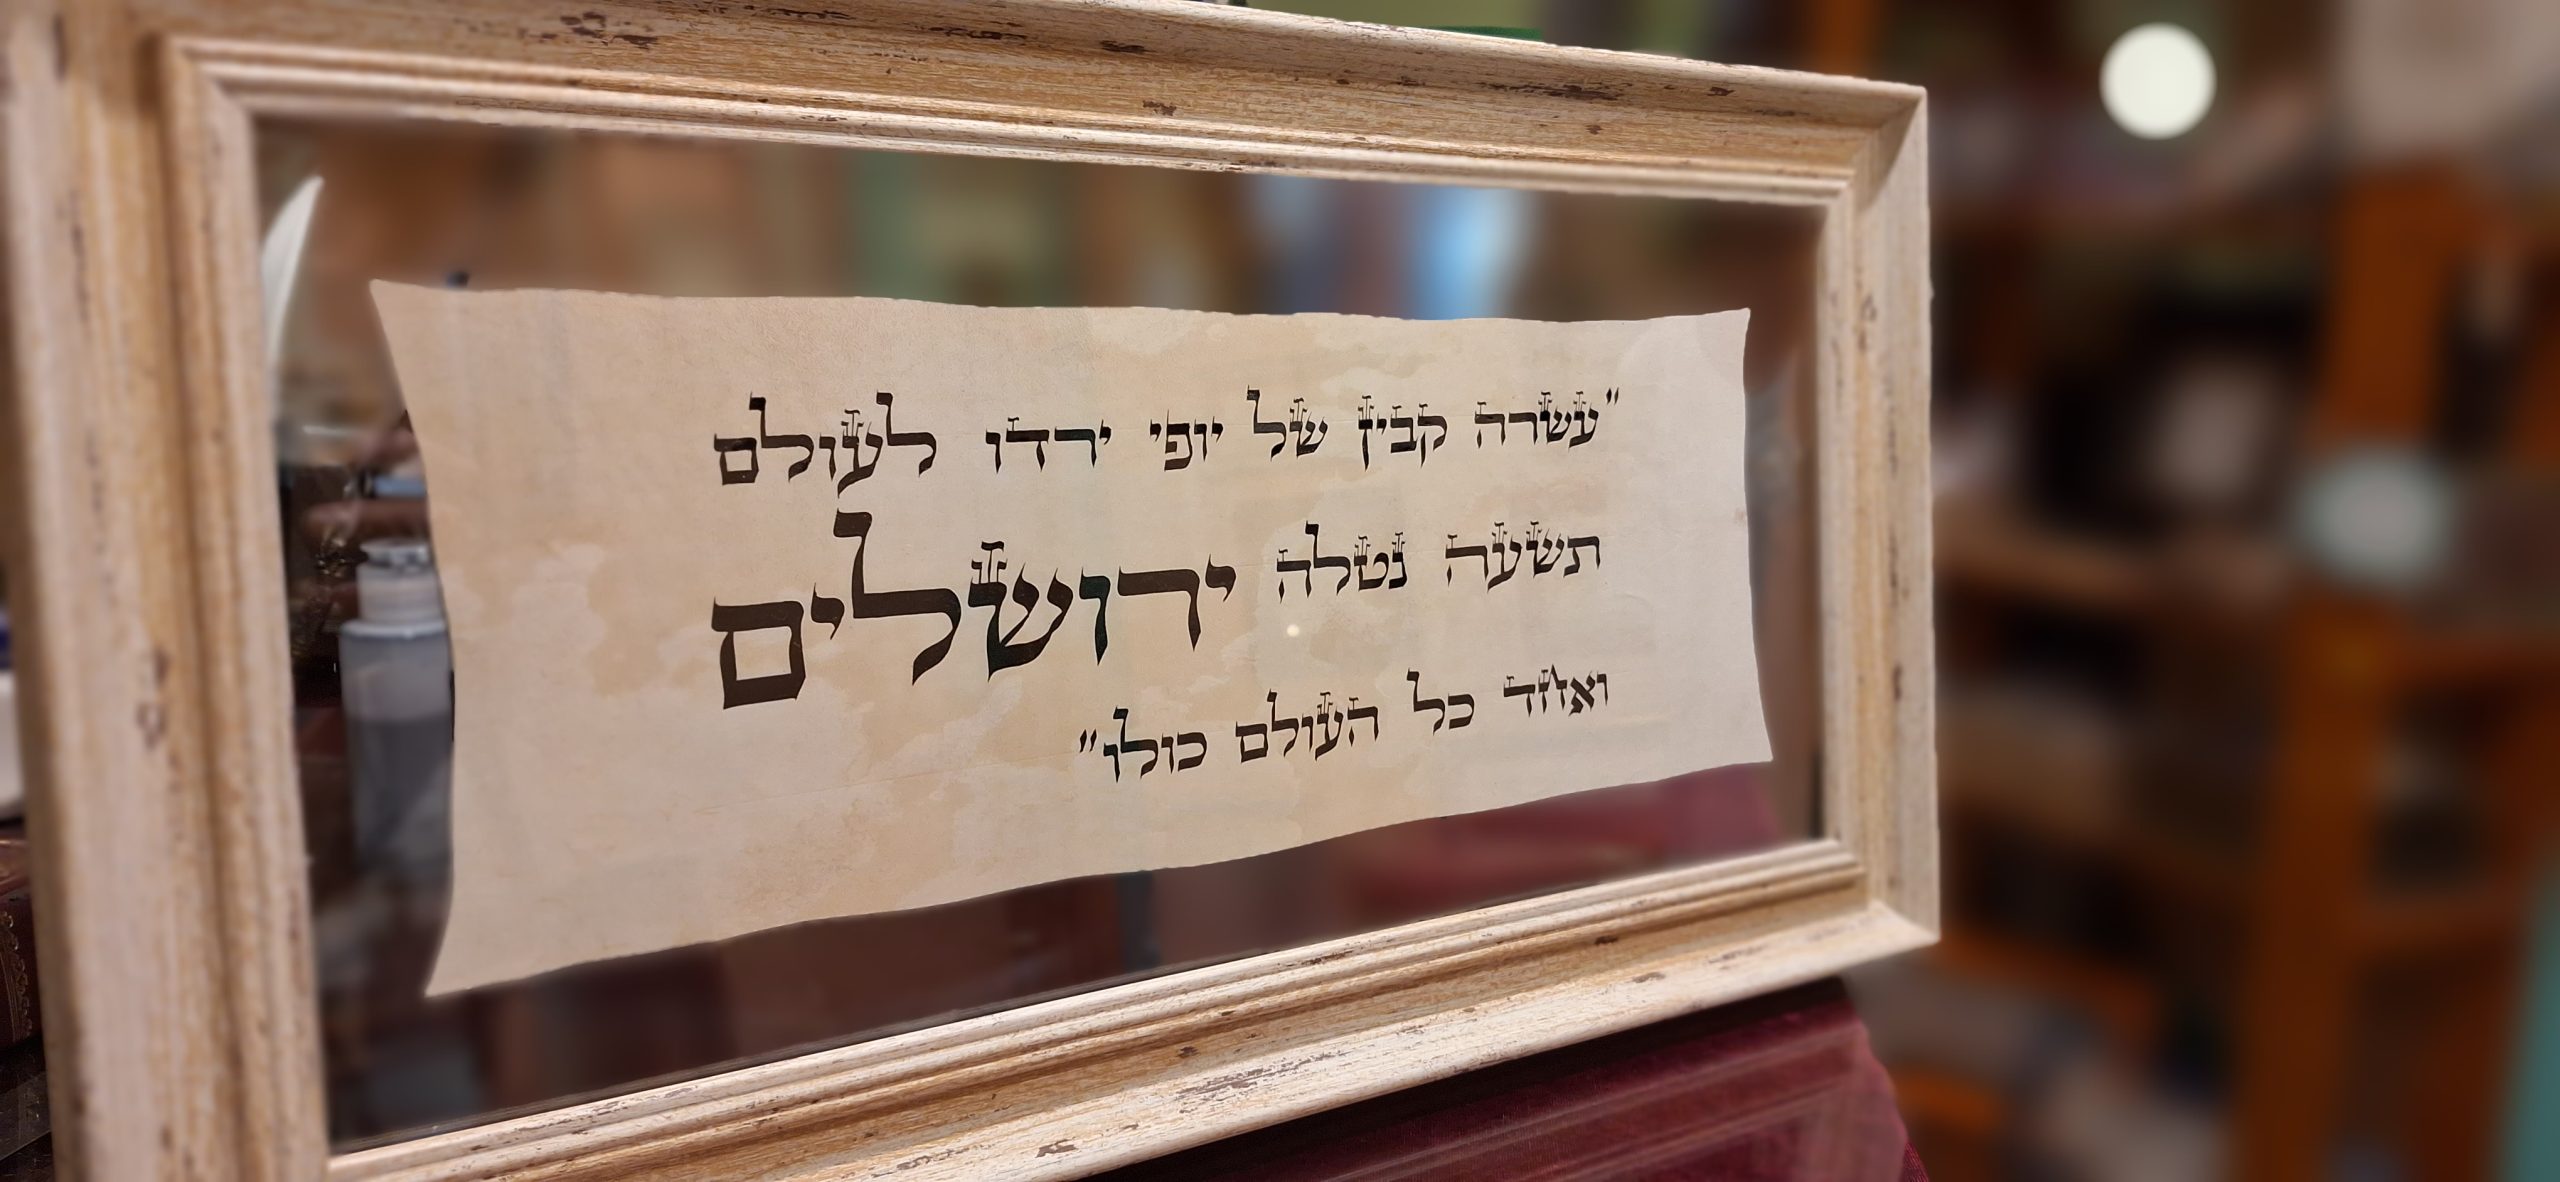 "עשרה קבין של יופי ירדו לעולם
תשעה נטלה ירושלים
ואחד כל העולם כולו"